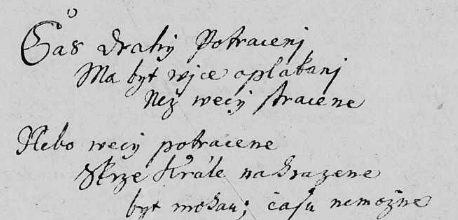 Čas drahý Potracenj
Ma být wjce oplakanj
Než wecy stracene
Nebo wecy potracene
Skrze Krále nahrazene
být mohau; času nemožne